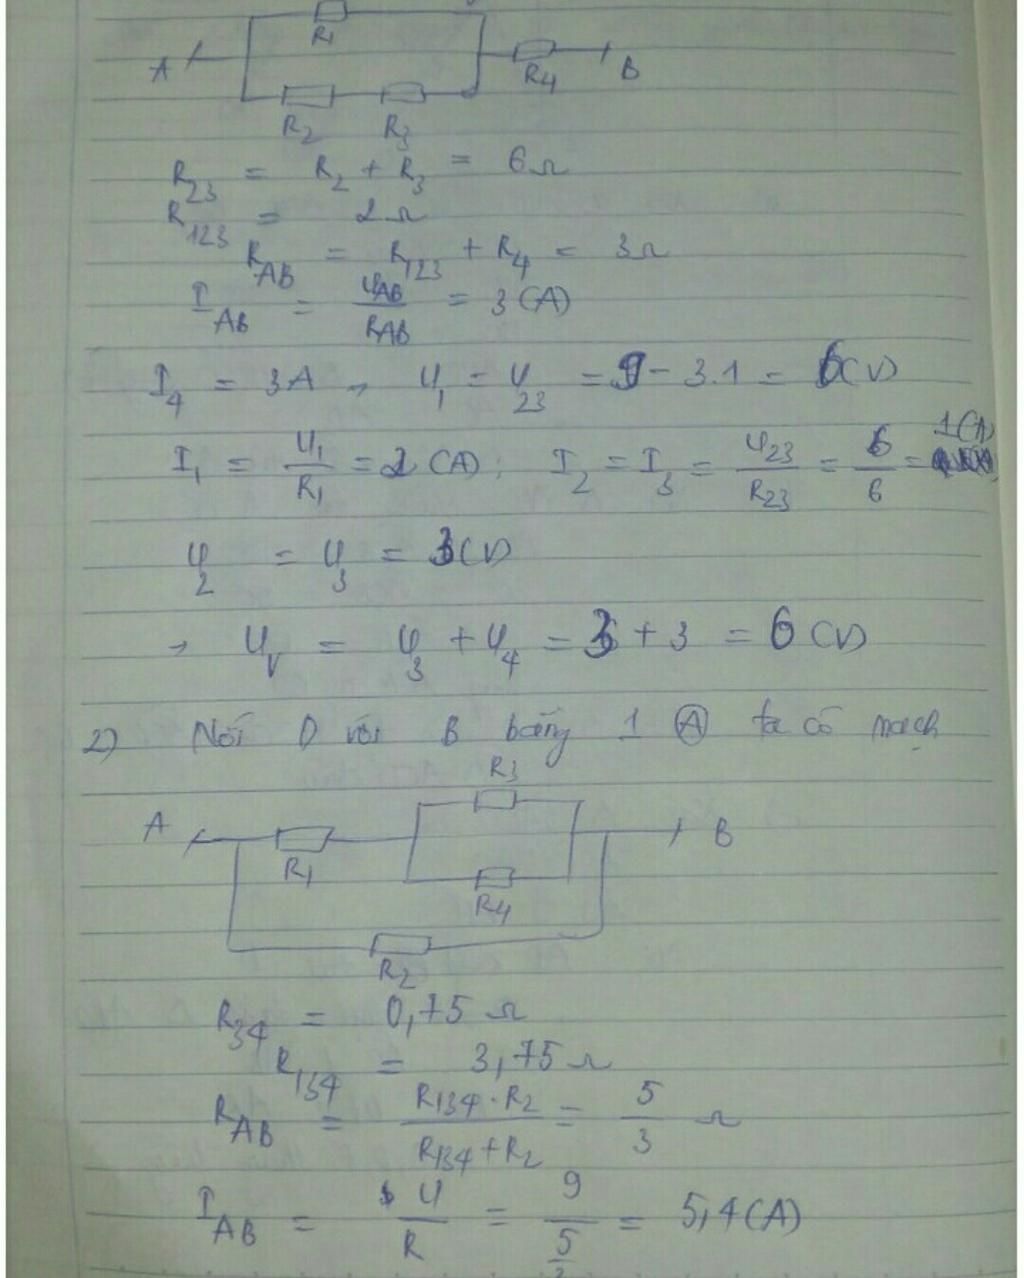 R1
A
R4
B
R2 R3
R23 = R2 + R3 = 6Ω
R123 = 2Ω
RAB = R123 + R4 = 3Ω
IAB = UAB / RAB = 3(A)
I4 = 3A → U1 = U23 = 9 - 3.1 = 6(V)
I1 = U1 / R1 = 2(A); I2 = I3 = U23 / R23 = 6 / 6 = 1(A)
U2 = U3 = 3(V)
→ UV = U3 + U4 = 3 + 3 = 6(V)
2) Nối D với B bằng 1 (A) ta có mạch
R3
A
B
R1
R4
R2
R34 = 0,75Ω
R134 = 3,75Ω
RAB = R134 . R2 / R134 + R2 = 5 / 3 Ω
IAB = U / R = 9 / 5/3 = 5,4(A)